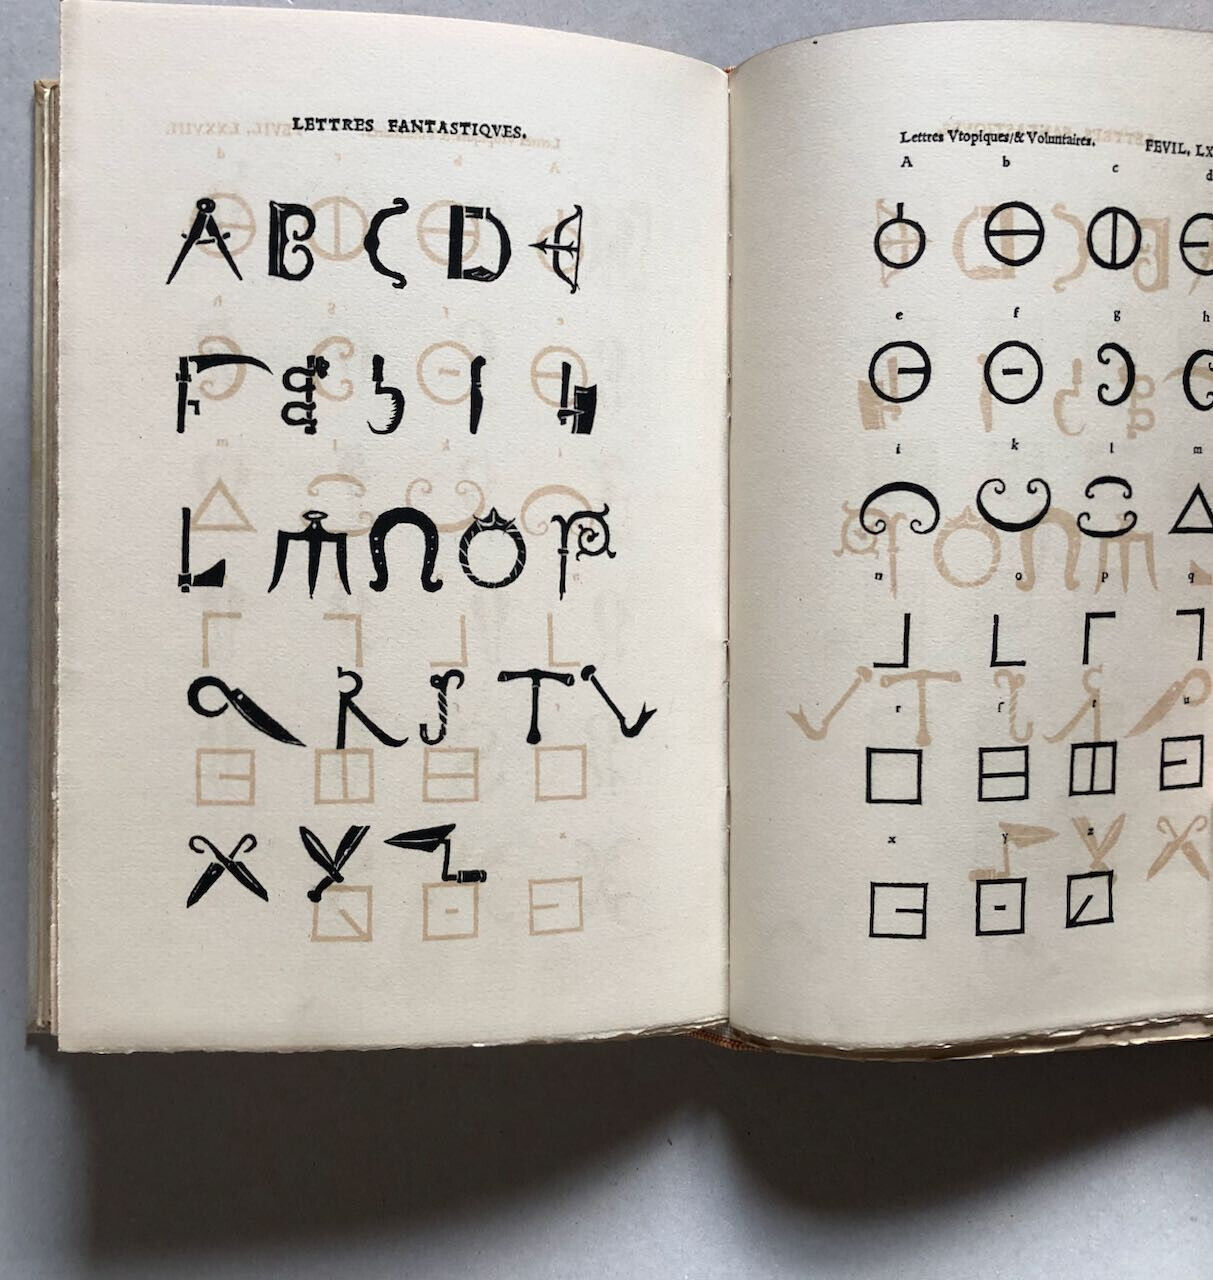 LETTRES FANTASTIQVES.
A B C D E
F G H I K
L M N O P
Q R S T V
X Y Z
Lettres Vtopiques/& Voluntaires.
FEVIL, LX
A b c d
e f g h
i k l m
n o p q
r ſ t u
x y z